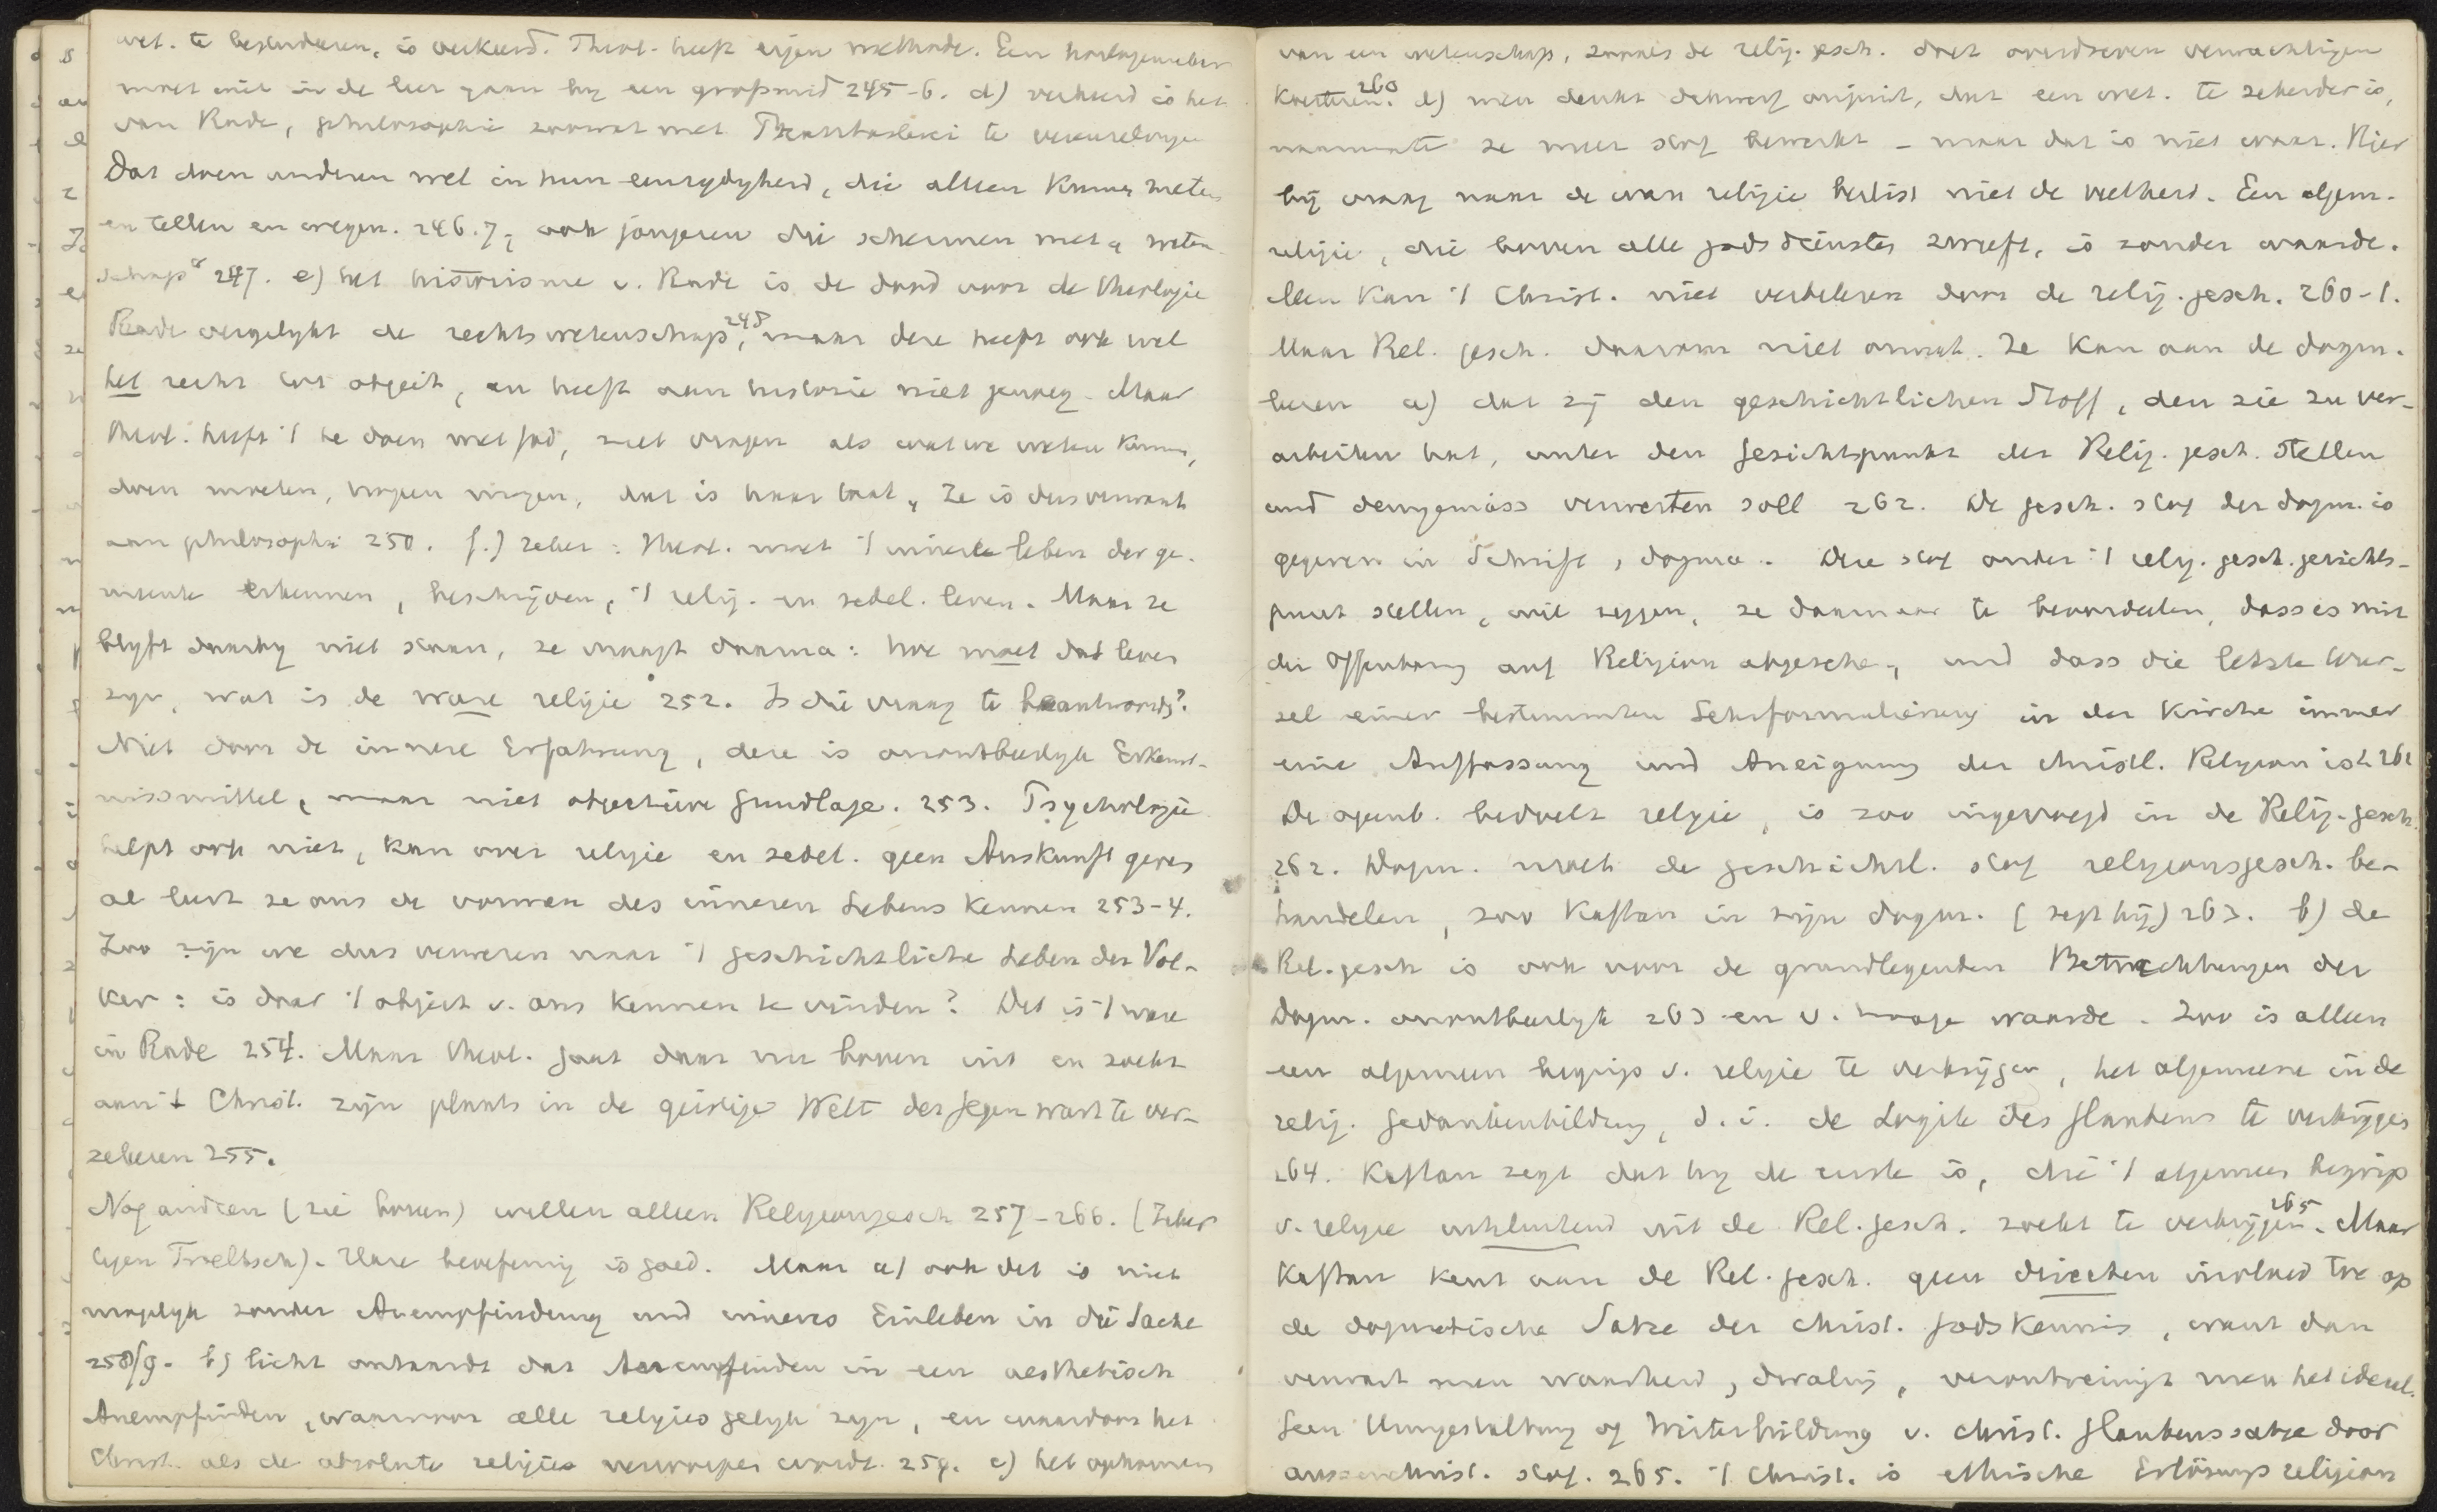 wet. te bestuderen, is verkeerd. Theol. heeft eigen methode. Een horlogemaker
moet niet in de leer gaan bij een grofsmid 245-6. d) verkeerd is het
van Rade, philosophie zoowat met Phantasterei te vereenzelvigen
Dat doen anderen wel in hun eenzydigheid, die alleen kunnen meten
en tellen en wegen. 246.7, ook jongeren die schermen met „ weten-
schap“ 247. e) het historisme v. Rade is de dood voor de theologie
Rade vergelykt de rechtswetenschap, 248 maar deze heeft ook wel
het recht tot object, en heeft aan historie niet genoeg. Maar
Theol. heeft 't te doen met God, met vragen als wat we weten kunnen,
doen moeten, hopen mogen, dat is haar taak, Ze is dus verwant
aan philosophie 250. f.) zeker: Theol. moet 't innere leben der ge-
meente erkennen, beschrijven, 't relig. en zedel. leven. Maar ze
blyft daarby niet staan, ze vraagt daarna: hoe moet dat leven
zyn, wat is de ware religie 252. Is die vraag te beantwoorden?
Niet door de innere Erfahrung, deze is onontbeerlyk Erkennt-
nissmittel, maar niet objective Grundlage. 253. Psychologie
helpt ook niet, kan over religie en zedel. geen Auskunft geven
al leert ze ons de vormen des inneren Lebens kennen 253-4.
Zoo zijn we dus verwezen naar 't geschichtliche Leben der Völ-
ker: is daar 't object v. ons kennen te vinden? Dat is 't ware
in Rade 254. Maar Theol. gaat daar nu boven uit en zoekt
aan 't Christ. zijn plaats in de geistige Welt der Gegenwart te ver-
zekeren 255.
Nog anderen (zie boven) willen alleen Religionsgesch 257-266. (Zeker
tegen Troeltsch). Hare beoefening is goed. Maar a) ook dat is niet
mogelyk zonder Anempfindung und inneres Einleben in die Sache
258/9. b) licht ontaardt dat Anempfinden in een aesthetisch
Anempfinden, waarvoor alle religies gelyk zyn, en waardoor het
Christ. als de absolute religie verworpen wordt. 259. c) het opkomen
van een wetenschap, zooals de relig. gesch. doet overdreven verwachtingen
koesteren. 260 d) men denkt dan onjuist, dat een wet. te zekerder is,
naarmate ze meer stof bewerkt - maar dat is niet waar. Hier
bij vraag naar de ware religie beslist niet de veelheid. Een algem.
religie, die boven alle godsdiensten zweeft, is zonder waarde.
Men kan 't Christ. niet verbeteren door de relig. gesch. 260-1.
Maar Rel. gesch. daarom niet onnut. Ze kan aan de dogm.
leeren a) dat zij den geschichtlichen Stoff, den sie zu ver-
arbeiten hat, unter den Gesichtspunkt der Relig. gesch. stellen
und demgemäss verwerten soll 262. De gesch. stof der dogm. is
gegeven in Schrift, dogma. Die stof onder 't relig. gesch. gezichts-
punt stellen, wil zeggen, ze daarnaar te beoordeelen, dass es mit
der Offenbarung auf Religion abgesehen, und dass die letzte Wur-
zel einer bestimmten Lehrformulierung in der Kirche immer
eine Auffassung und Aneignung der christl. Religion ist 262
De openb. bedoelt religie, is zoo ingevoegd in de Relig. gesch.
262. Dogm. moet de geschichtl. stof religionsgesch. be-
handelen, zoo Kaftan in zijn dogm. (zegt hij) 263. b) de
Rel. gesch is ook voor de grundlegenden Betrachtungen der
Dogm. onontbeerlyk 263 en v. hooge waarde. Zoo is alleen
een algemeen begrip v. religie te verkrijgen, het algemeene in de
relig. Gedankenbildung, d. i. de Logik des Glaubens te verkrijgen
264. Kaftan zegt dat hy de eerste is, die 't algemeen begrip
v. religie uitsluitend uit de Rel. gesch. zoekt te verkrijgen. 265 Maar
Kaftan kent aan de Rel. gesch. geen directen invloed toe op
de dogmatische Sätze der christ. Godskennis, want dan
vermengt men waarheid, dwaling, verontreinigt men het ideaal.
Geen Umgestaltung of Weiterbildung v. christ. Glaubenssätze door
ausserchrist. stof. 265. 't Christ. is ethische Erlösungsreligion